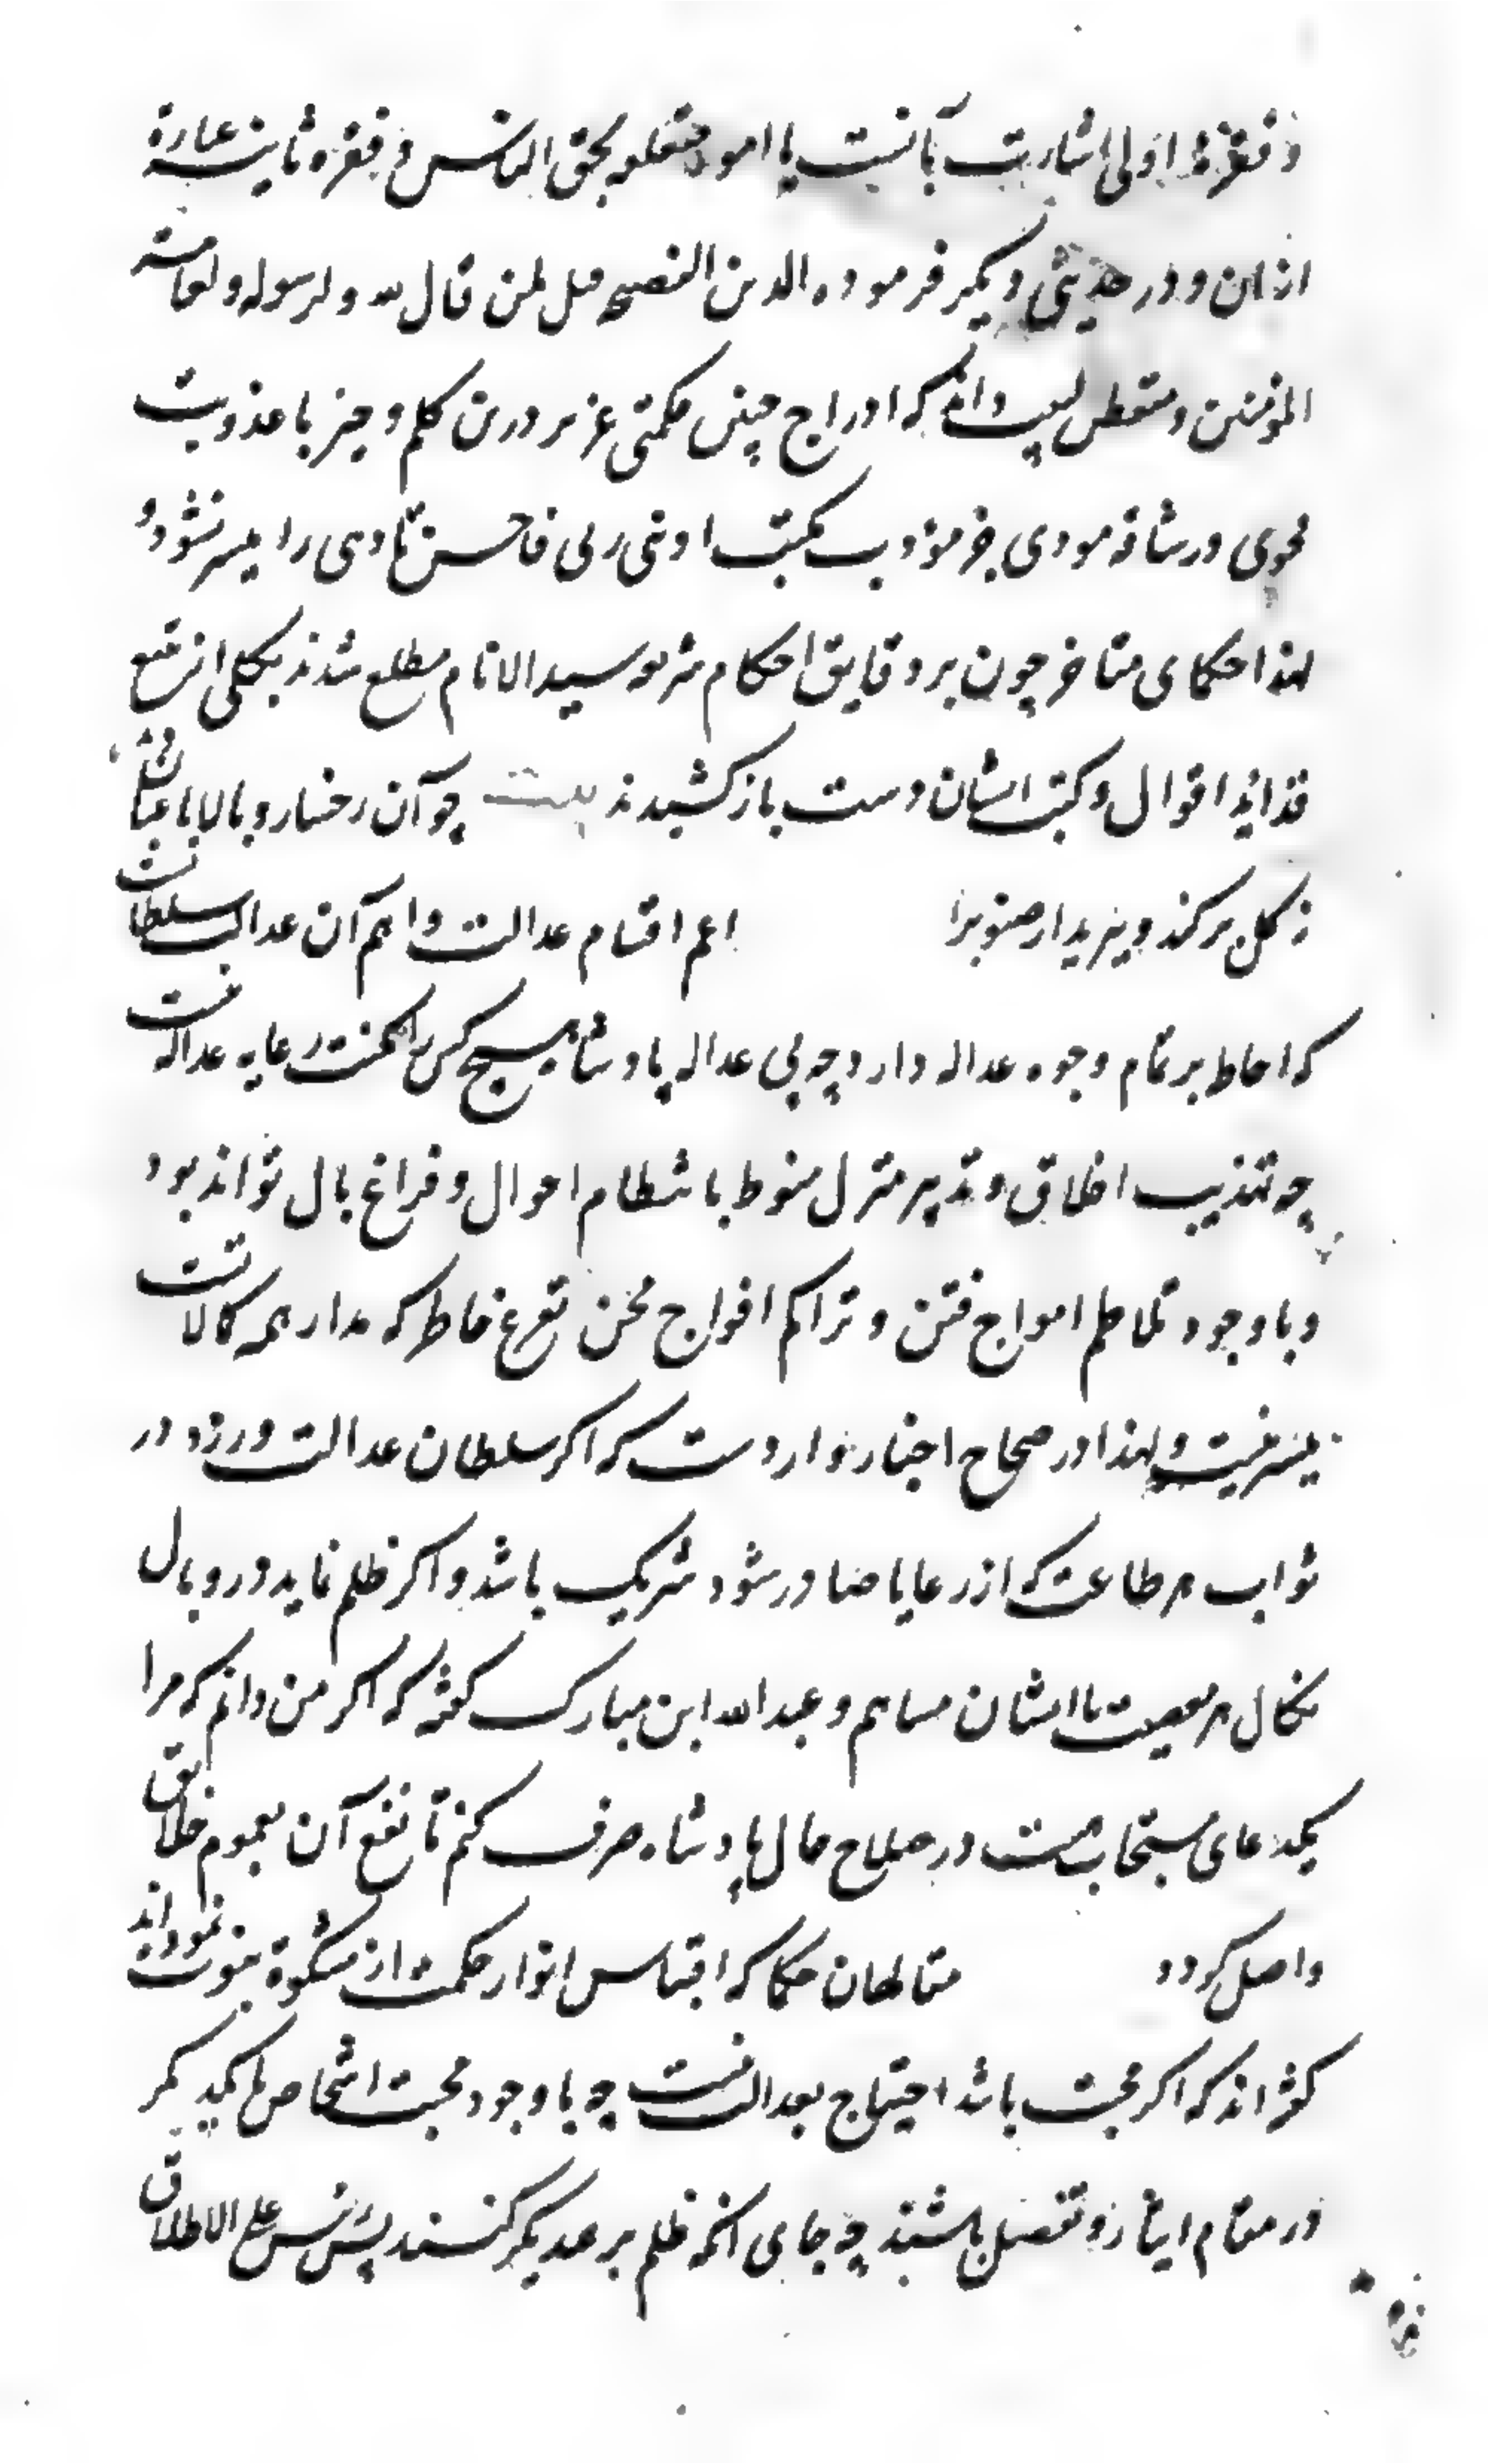 و فقرهٔ اولی اشارت بآنست یا امور متعلقه بحق الناس و فقره ثانیه عبارة
ازان و در حدیثی دیکر فرموده الدین النصیحه قیل لمن قال لله و لرسوله و لعامة
المؤمنین و متفطن لبیب داند که ادراج چنین حکمتی عزیز درین کلم وجیز با عذوبت
فحوی و رشاقه مودی جز مؤدب بمکتب ادبنی ربی فاحسن تادیبی را میسر نشود و
لهذا حکمای متاخر چون بر دقایق احکام شریعه سیدالانام مطلع شدند بکلی از تتبع
فواید اقوال و کتب ایشان دست باز کشیدند بیت چو آن رخسار و بالا باغبان
ز کل برکند و ببرید ار صنوبر را اعم اقسام عدالت و اهم آن عدالت سلطانست
که احاطه بر تمام وجوه عداله دارد چه بی عداله پادشاه هیچ کس را مکنت رعایه عداله نیست
چه تهذیب اخلاق و تدبیر منزل منوط بانتظام احوال و فراغ بال تواند بود
و با وجود تلاطم امواج فتن و تراکم افواج محن تفرغ خاطر که مدار همه کمالاتست
میسر نیست و لهذا در صحاح اخبار وارد ست که اکر سلطان عدالت ورزد در
ثواب هر طاعت که از رعایا صادر شود شریک باشد و اکر ظلم نماید در وبال
نکال هر معصیت با ایشان مساهم و عبدالله ابن مبارک کفته که اکر من دانم که مرا
یک دعای مستجاب هست در صلاح حال پادشاه صرف کنم تا نفع آن بعموم خلایق
واصل کردد متالهان حکما که اقتباس انوار حکمت از مشکوة نبوت نموده‌اند
کفته‌اند که اکر محبت باشد احتیاج بعدالت نیست چه با وجود محبت اشخاص با یکدیکر
در مقام ایثار و تفضل باشند چه جای انکه ظلم بر همدیکر کنند پس نفس علی الاطلاق